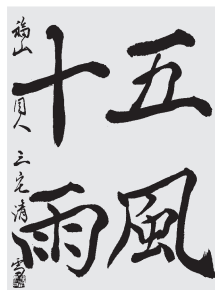 五風
十雨
福山 同人 三宅清雪